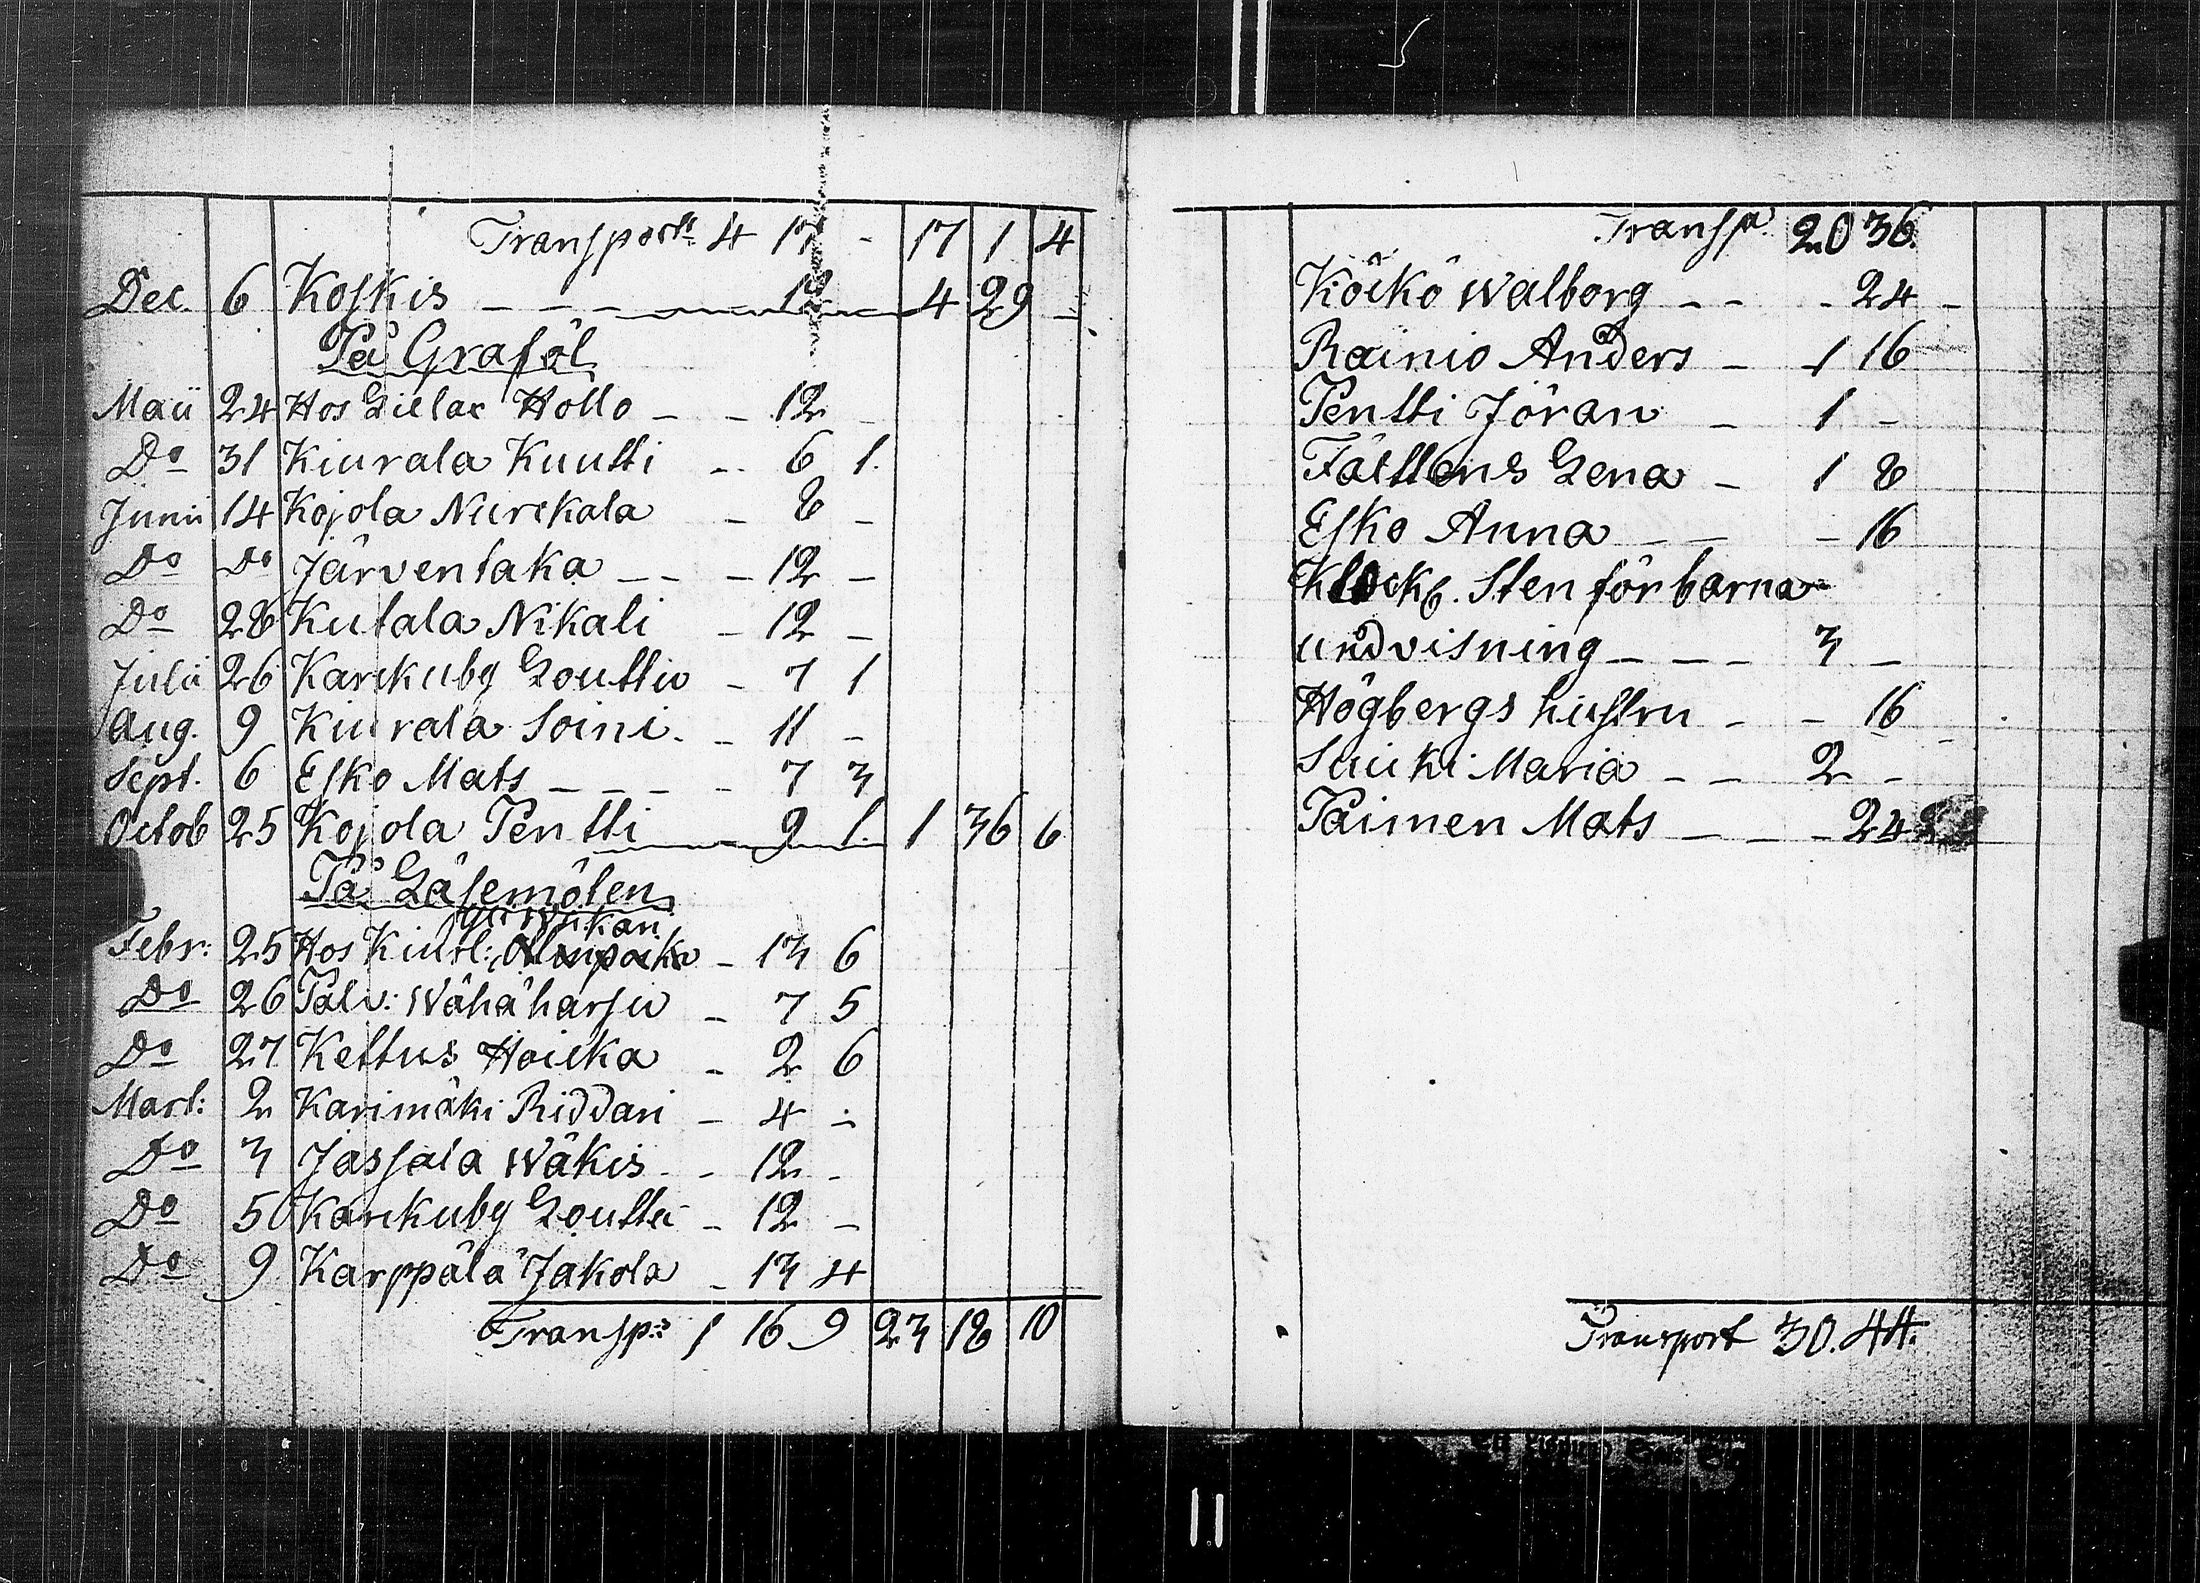 Transport 4 17 - 17 1 4
Dec. 6 Koskis - - - 12 4 29 -
På Graföl
Maii 24 Hos Lielax Hollo - - 12 -
Do 31 Kiurala Kuutti - 6 1.
Junii 14 Kojola Niirikala - 8 -
Do Do Järventaka - - - 12 -
Do 28 Kutala Nikali - 12 -
Julii 26 Karckuby Louttu - 7 1
Aug. 9 Kiurala Soini - - 11 -
Sept. 6 Esko Mats - - - - 7 3
Octob 25 Kojola Pentti 9 1. 1 36 6
På Läsemöten
Yli Wükari
Febr: 25 Hos Kiurl: - 13 6
Do 26 Palv: Wähäharju - 7 5
Do 27 Kettus Hoicka - 2 6
Mart: 2 Karimäki Riddari - 4 -
Do 3 Jassala Wäkis - - 12 -
Do 5 Karckuby Loutti - 12 -
Do 9 Karppälä Jakola - 13 4
Transp: 1 16 9 23 18 10
Transpt 20 36.
Köckö Walborg - - - 24 -
Rainio Anders - 1 16
Pentti Jöran - 1 -
Fälttens Lena - 1 8
Esko Anna - - - 16
Klock. Sten för barna
undvisning - - - 3 -
Högbergs hustru - - 16
Suicki Maria - - 2 -
Paimen Mats - - - 24
Transport 30.44.